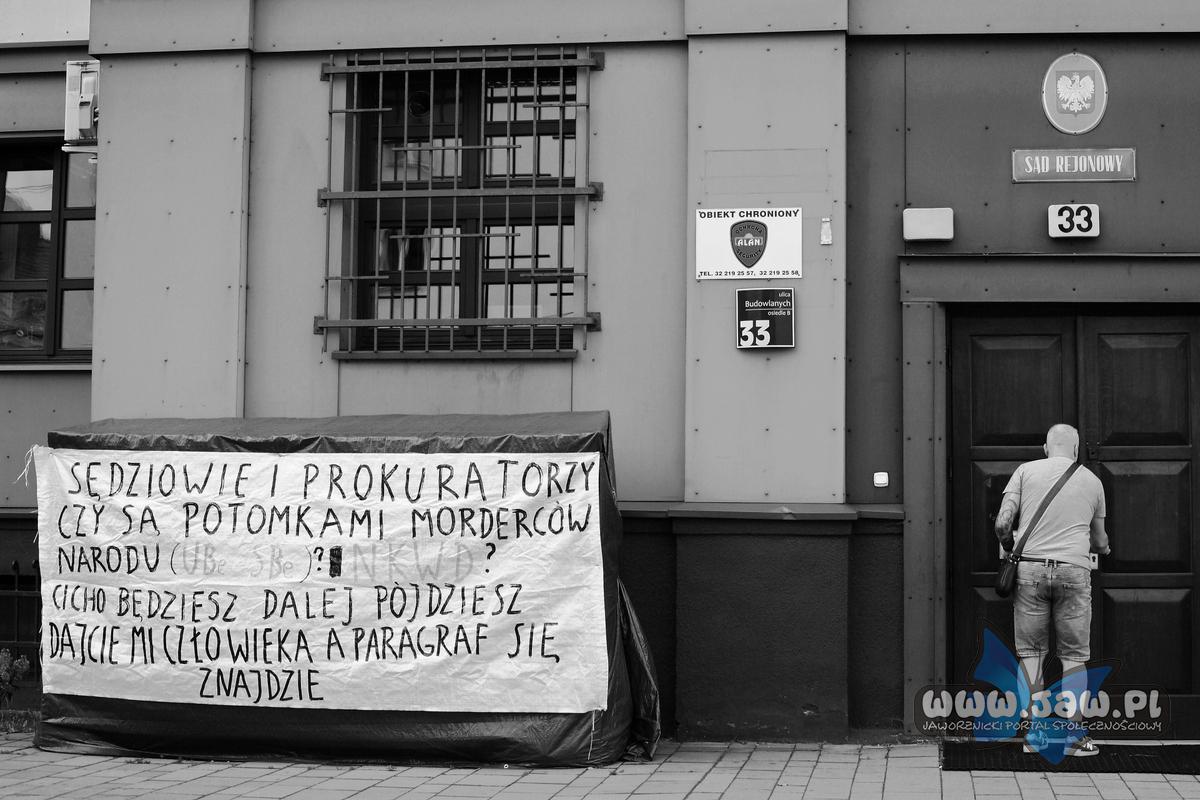 SĄD REJONOWY
33
OBIEKT CHRONIONY
OCHRONA
ALAN
SECURITY
TEL. 32 219 25 57, 32 219 25 58
ulica
Budowlanych
osiedle B
33
SĘDZIOWIE I PROKURATORZY
CZY SĄ POTOMKAMI MORDERCÓW
NARODU (UBe SBe)? NKWD?
CICHO BĘDZIESZ DALEJ PÓJDZIESZ
DAJCIE MI CZŁOWIEKA A PARAGRAF SIĘ
ZNAJDZIE
www.jaw.pl
JAWORZNICKI PORTAL SPOŁECZNOŚCIOWY